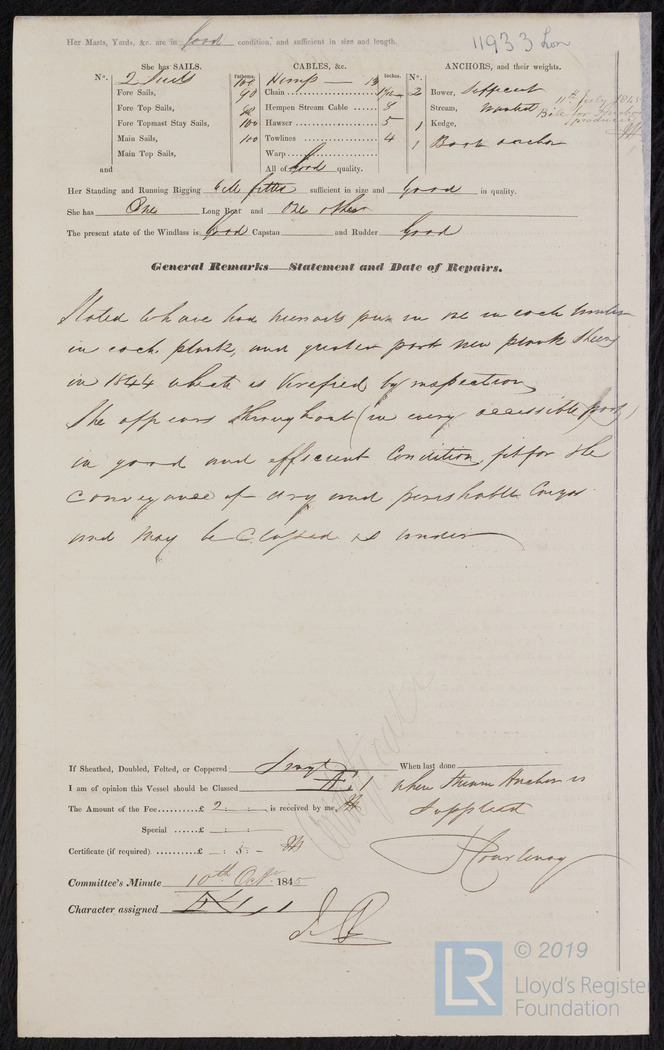 Her Masts, Yards, &c. are in Good condition, and sufficient in size and length.
11933 Lon
She has SAILS.
CABLES, &c.
ANCHORS, and their weights.
No.
2 Suits
Fathoms.
100
Hemp
Inches.
No.
Fore Sails,
90
Chain
2
Bower, Sufficient
Fore Top Sails,
Hempen Stream Cable
Stream, Wanted
11th July 1845
Fore Topmast Stay Sails,
100
Hawser
5
1
Kedge,
produced
Main Sails,
100
Towlines
4
1
Boat anchor
Main Top Sails,
Warp
and
All of Good quality.
Her Standing and Running Rigging sufficient in size and Good in quality.
She has One Long Boat and One other
The present state of the Windlass is Good Capstan and Rudder Good
General Remarks—Statement and Date of Repairs.
Stated to have had in one in each
in each plank, and greater part new plank
in 1844 which is Verefied by inspection
She appears throughout (in every accessible part)
in good and efficient Condition, fit for the
Conveyance of dry and perishable Cargos
and may be Classed as under
If Sheathed, Doubled, Felted, or Coppered
When last done
I am of opinion this Vessel should be Classed 1 when Stream Anchor is
supplied
The Amount of the Fee £ 2 : : is received by me,
Special £ : :
Certificate (if required) £ : 5 : -
Committee's Minute 10th Oct. 1845
Character assigned
© 2019
LR
Lloyd's Register
Foundation